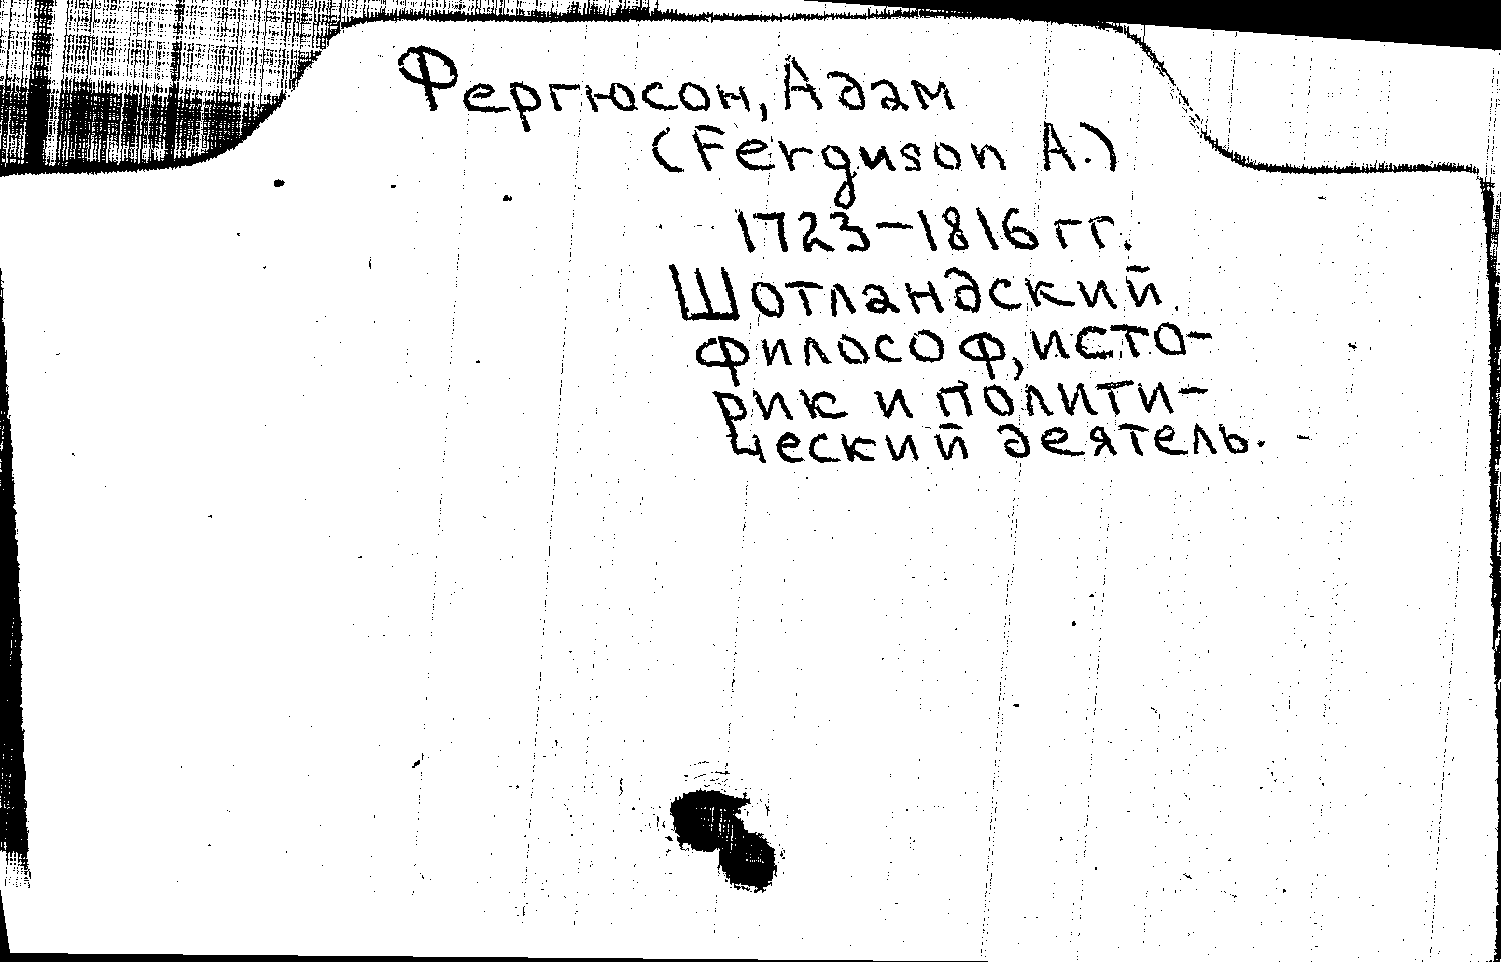 Фергюсон, Адам
(Ferguson A.)
1723-1816 гг.
Шотландский
философ, исто-
рик и полити-
ческий деятель.